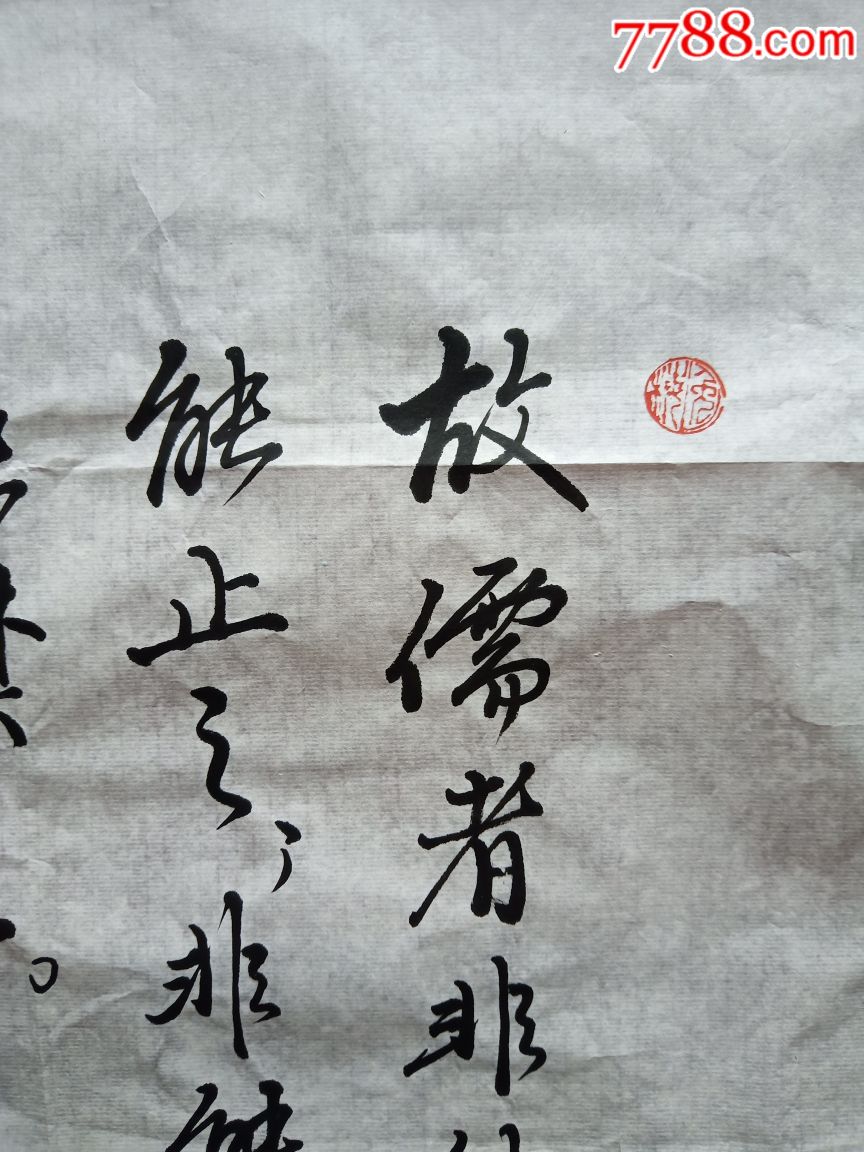 7788.com
故儒者非
能止之，非能